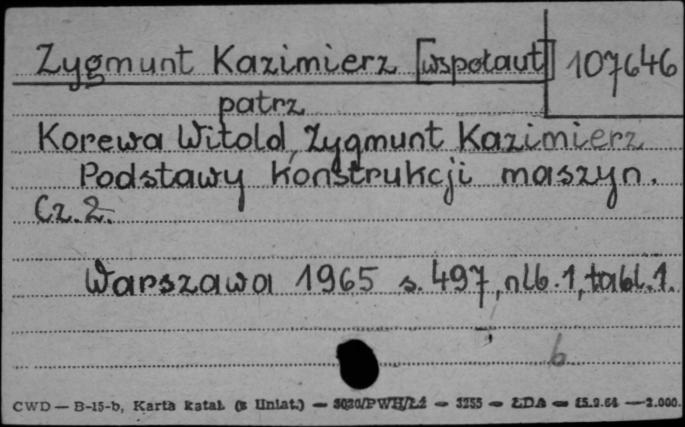 Zygmunt Kazimierz [wspołaut] 107646
patrz
Korewa Witold, Zygmunt Kazimierz
Podstawy konstrukcji maszyn.
Cz. 2.
Warszawa 1965 s. 497, nlb. 1, tabl. 1.
b
CWD — B-15-b, Karta katal. (z Uniat.) — 5020/PWH/Łź — 3255 — ŁDA — 15.9.64 — 2.000.